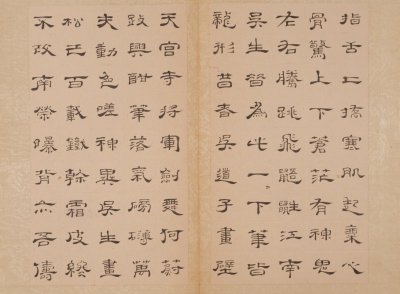 指舌上撟寒肌起粟心
骨驚上下蒼茫有神鬼
左右騰跳飛鼯鼪江南
吳生曾為此一下筆皆
龍形昔者吳道子畫壁
天宮寺將軍劍舞何蔚
跂興酣筆落氣磅礴萬
夫動色嗟神異吳生畫
松已百載鐵榦霜皮終
不改南榮曝背亦吾儔